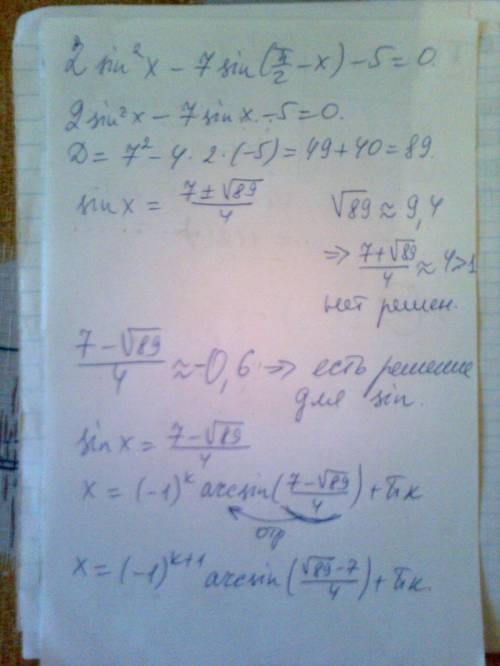 2 sin²x − 7 sin(π/2 − x) − 5 = 0.
2 sin²x − 7 sin x − 5 = 0.
D = 7² − 4 · 2 · (−5) = 49 + 40 = 89.
sin x = (7 ± √89)/4
√89 ≈ 9,4
⇒ (7 + √89)/4 ≈ 4 > 1
нет решен.
(7 − √89)/4 ≈ −0,6 ⇒ есть решение
для sin.
sin x = (7 − √89)/4
x = (−1)^k arcsin((7 − √89)/4) + πk
x = (−1)^(k+1) arcsin((√89 − 7)/4) + πk.